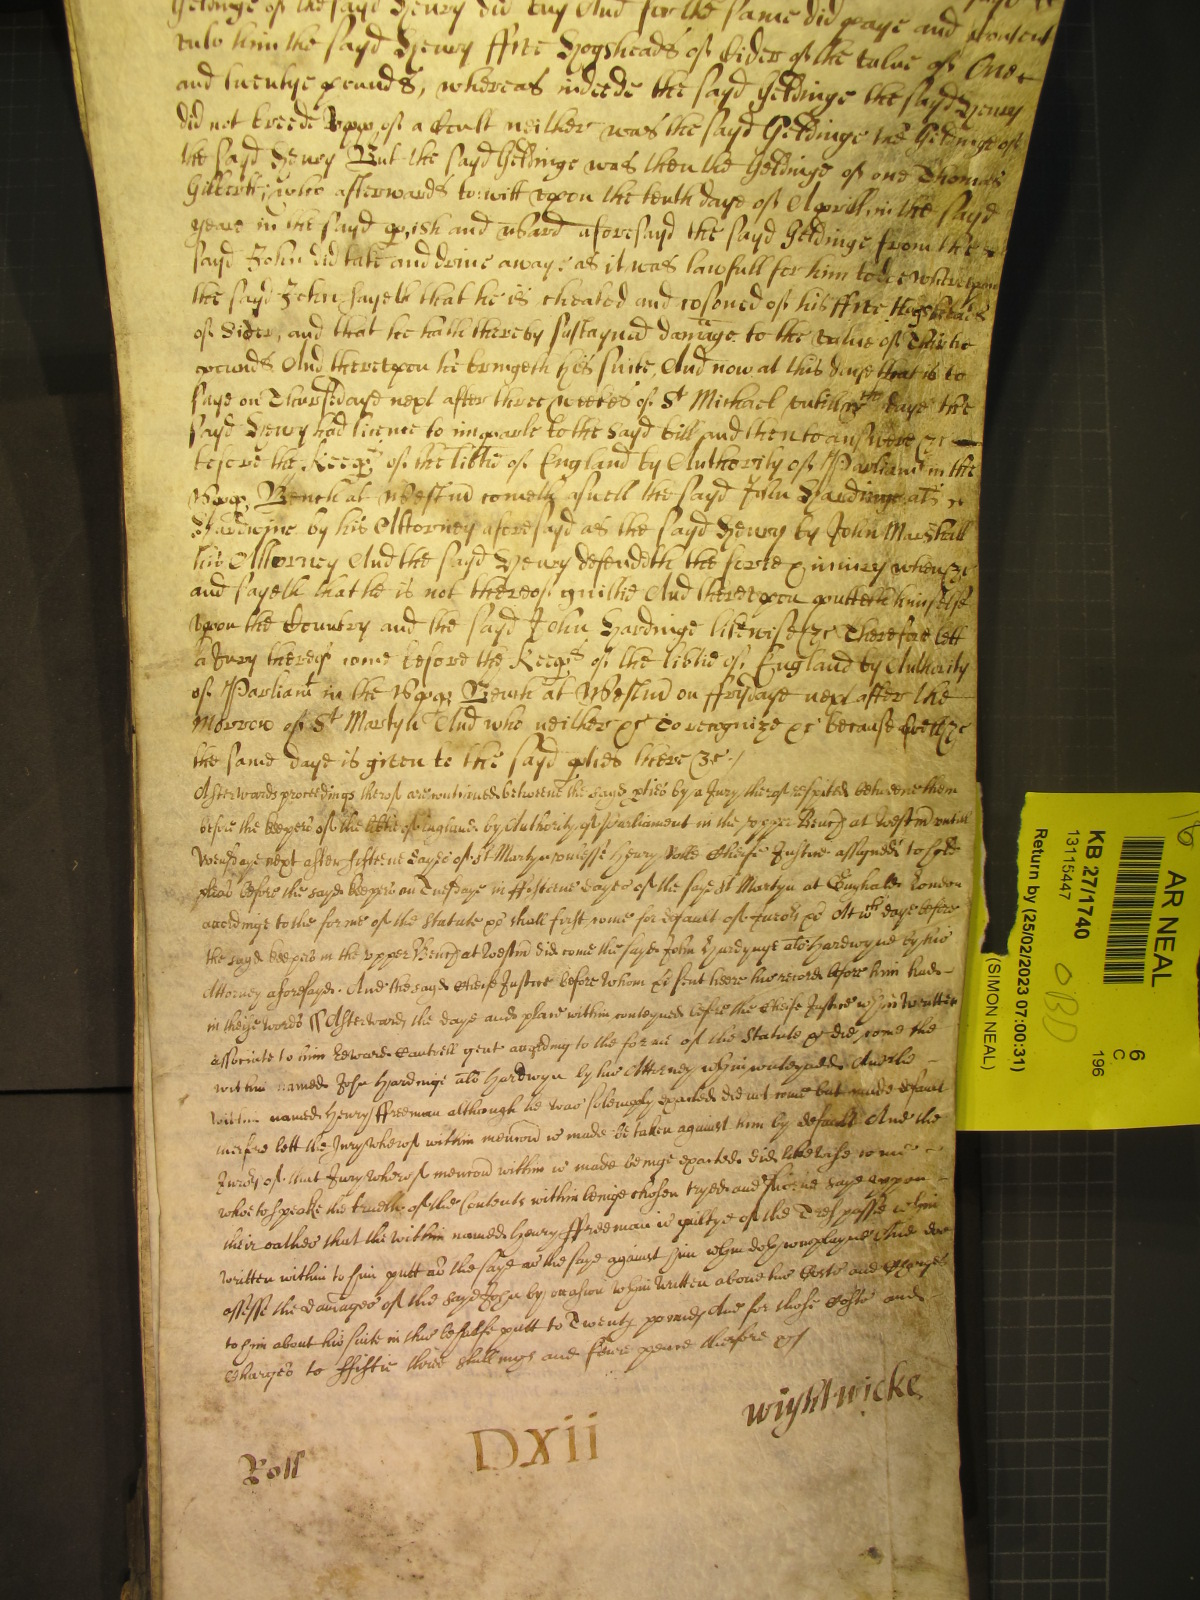 Geldinge of the sayd Henry did buy And for the same did paye and
unto him the sayd Henry ffive Hogsheads of Cider of the value of One
and twentye pounds, whereas indeede the sayd Geldinge the sayd Henry
did not breede upp of a Coult neither was the sayd Geldinge the Geldinge of
the sayd Henry But the sayd Geldinge was then the Geldinge of one Thomas
Gilbert, who afterwards to witt upon the tenth daye of Aprill in the sayd
yeare in the sayd pish and Ward aforesayd the sayd Geldinge from the
sayd John did take and drive awaye as it was lawfull for him to doe whereupon
the sayd John sayeth that he is cheated and cosened of his ffive Hogsheads
of Sider, and that he hath thereby sustayned damage to the value of Thirtie
pounds And thereupon he bringeth his suite, And now at this daye that is to
saye on Thursdaye next after three weekes of St Michael untill wch daye the
sayd Henry had licence to imparle to the sayd bill and then to answere &c
before the Keeps of the libtie of England by Authority of Parliamt in the
Upp Bench at Westm cometh aswell the sayd John Hardinge als
Hardwyne by his Attorney aforesayd as the sayd Henry by John Marshall
his Attorney And the sayd Henry defendeth the force & iniury when &c
and sayeth that he is not thereof guiltie And thereupon putteth himselfe
upon the Country and the sayd John Hardinge likewise &c Therefore lett
a Jury thereof come before the Keeps of the libtie of England by Authority
of Parliamt in the Upp Bench at Westm on ffrydaye next after the
Morrow of St Martyn And who neither &c to recognize &c because aswell &c
the same daye is given to the sayd pties there &c /
Afterwards proceedings therof are continued betweene the sayd pties by a Jury therof respited betweene them
before the keepers of the libtie of England by Authority of Parliament in the upper Bench at Westm untill
Wensdaye next after fifteene dayes of St Martyn unlesse Henry Rolle Cheife Justice assigned to hold
pleas before the sayd keepers on Tuesdaye in fifteene dayes of the saye St Martyn at Guyhald London
accordinge to the forme of the Statute &c shall first come for default of Jurors &c At wch daye before
the sayd keepers in the upper Bench at Westm did come the sayd John Hardynge als Hardwyne by his
Attorney aforesayd. And the sayd Cheife Justice before whom &c sent heere his record before him had
in theise words // Afterwards the daye and place within conteyned before the Cheife Justice wthin written
associate to him Edward Cantrell gent according to the forme of the Statute &c did come the
within named John Hardinge als Hardwyn by his Attorney wthin conteyned And the
within named Henry ffreeman although he was solempnly exacted did not come but made default
therfore lett the Jury wherof within mencon is made be taken against him by default And the
Jurors of that Jury wherof mencon within is made beinge exacted did likewise come
whoe to speake the trueth of the Contents within beinge chosen tryed and sworne saye uppon
their oathes that the within named Henry ffreeman is guiltye of the Trespasse wthin
written within to him putt as the saye as the saye against him wthin doth complayne And doe
assesse the damages of the sayd John by occasion wthin written above his Costs and Charges
to him about his suite in this behalfe putt to Twenty pounds And for those Costs and
Charges to ffiftie three shillings and foure pence therfore &c /
Wightwicke
Roll
DXii
AR NEAL
6
C
196
KB 27/1740
13115447
Return by (25/02/2023 07:00:31)
(SIMON NEAL)
OBD